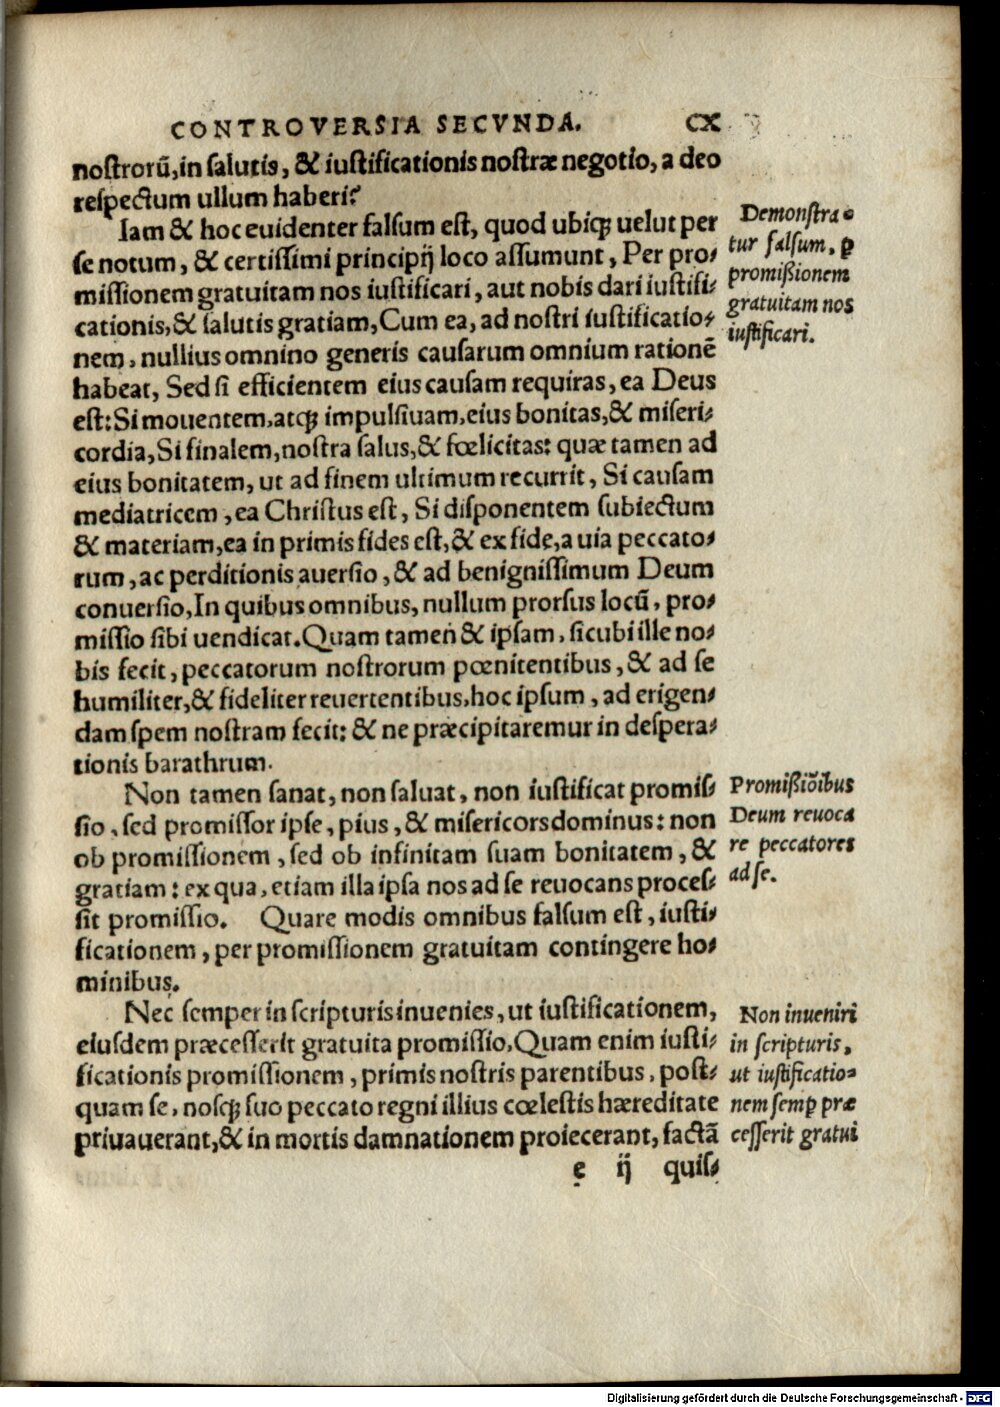 CONTROVERSIA SECVNDA. CX
nostrorũ, in salutis, & iustificationis nostræ negotio, a deo
respectum ullum haberi?
Iam & hoc euidenter falsum est, quod ubiqꝫ uelut per
se notum, & certissimi principij loco assumunt, Per pro-
missionem gratuitam nos iustificari, aut nobis dari iustifi-
cationis, & salutis gratiam, Cum ea, ad nostri iustificatio-
nem, nullius omnino generis causarum omnium rationẽ
habeat, Sed si efficientem eius causam requiras, ea Deus
est: Si mouentem, atqꝫ impulsiuam, eius bonitas, & miseri-
cordia, Si finalem, nostra salus, & fœlicitas: quæ tamen ad
eius bonitatem, ut ad finem ultimum recurrit, Si causam
mediatricem, ea Christus est, Si disponentem subiectum
& materiam, ea in primis fides est, & ex fide, a uia peccato-
rum, ac perditionis auersio, & ad benignissimum Deum
conuersio, In quibus omnibus, nullum prorsus locũ, pro-
missio sibi uendicat. Quam tamen & ipsam, sicubi ille no-
bis fecit, peccatorum nostrorum pœnitentibus, & ad se
humiliter, & fideliter reuertentibus, hoc ipsum, ad erigen-
dam spem nostram fecit: & ne præcipitaremur in despera-
tionis barathrum.
Non tamen sanat, non saluat, non iustificat promis-
sio, sed promissor ipse, pius, & misericors dominus: non
ob promissionem, sed ob infinitam suam bonitatem, &
gratiam: ex qua, etiam illa ipsa nos ad se reuocans proces-
sit promissio. Quare modis omnibus falsum est, iusti-
ficationem, per promissionem gratuitam contingere ho-
minibus.
Nec semper in scripturis inuenies, ut iustificationem,
eiusdem præcesserit gratuita promissio, Quam enim iusti-
ficationis promissionem, primis nostris parentibus, post-
quam se, nosqꝫ suo peccato regni illius cœlestis hæreditate
priuauerant, & in mortis damnationem proiecerant, factã
e ij quis-
Demonstra-
tur falsum, ꝑ
promissionem
gratuitam nos
iustificari.
Promissiõibus
Deum reuoca
re peccatores
ad se.
Non inueniri
in scripturis,
ut iustificatio-
nem semꝑ præ
cesserit gratui
Digitalisierung gefördert durch die Deutsche Forschungsgemeinschaft - DFG